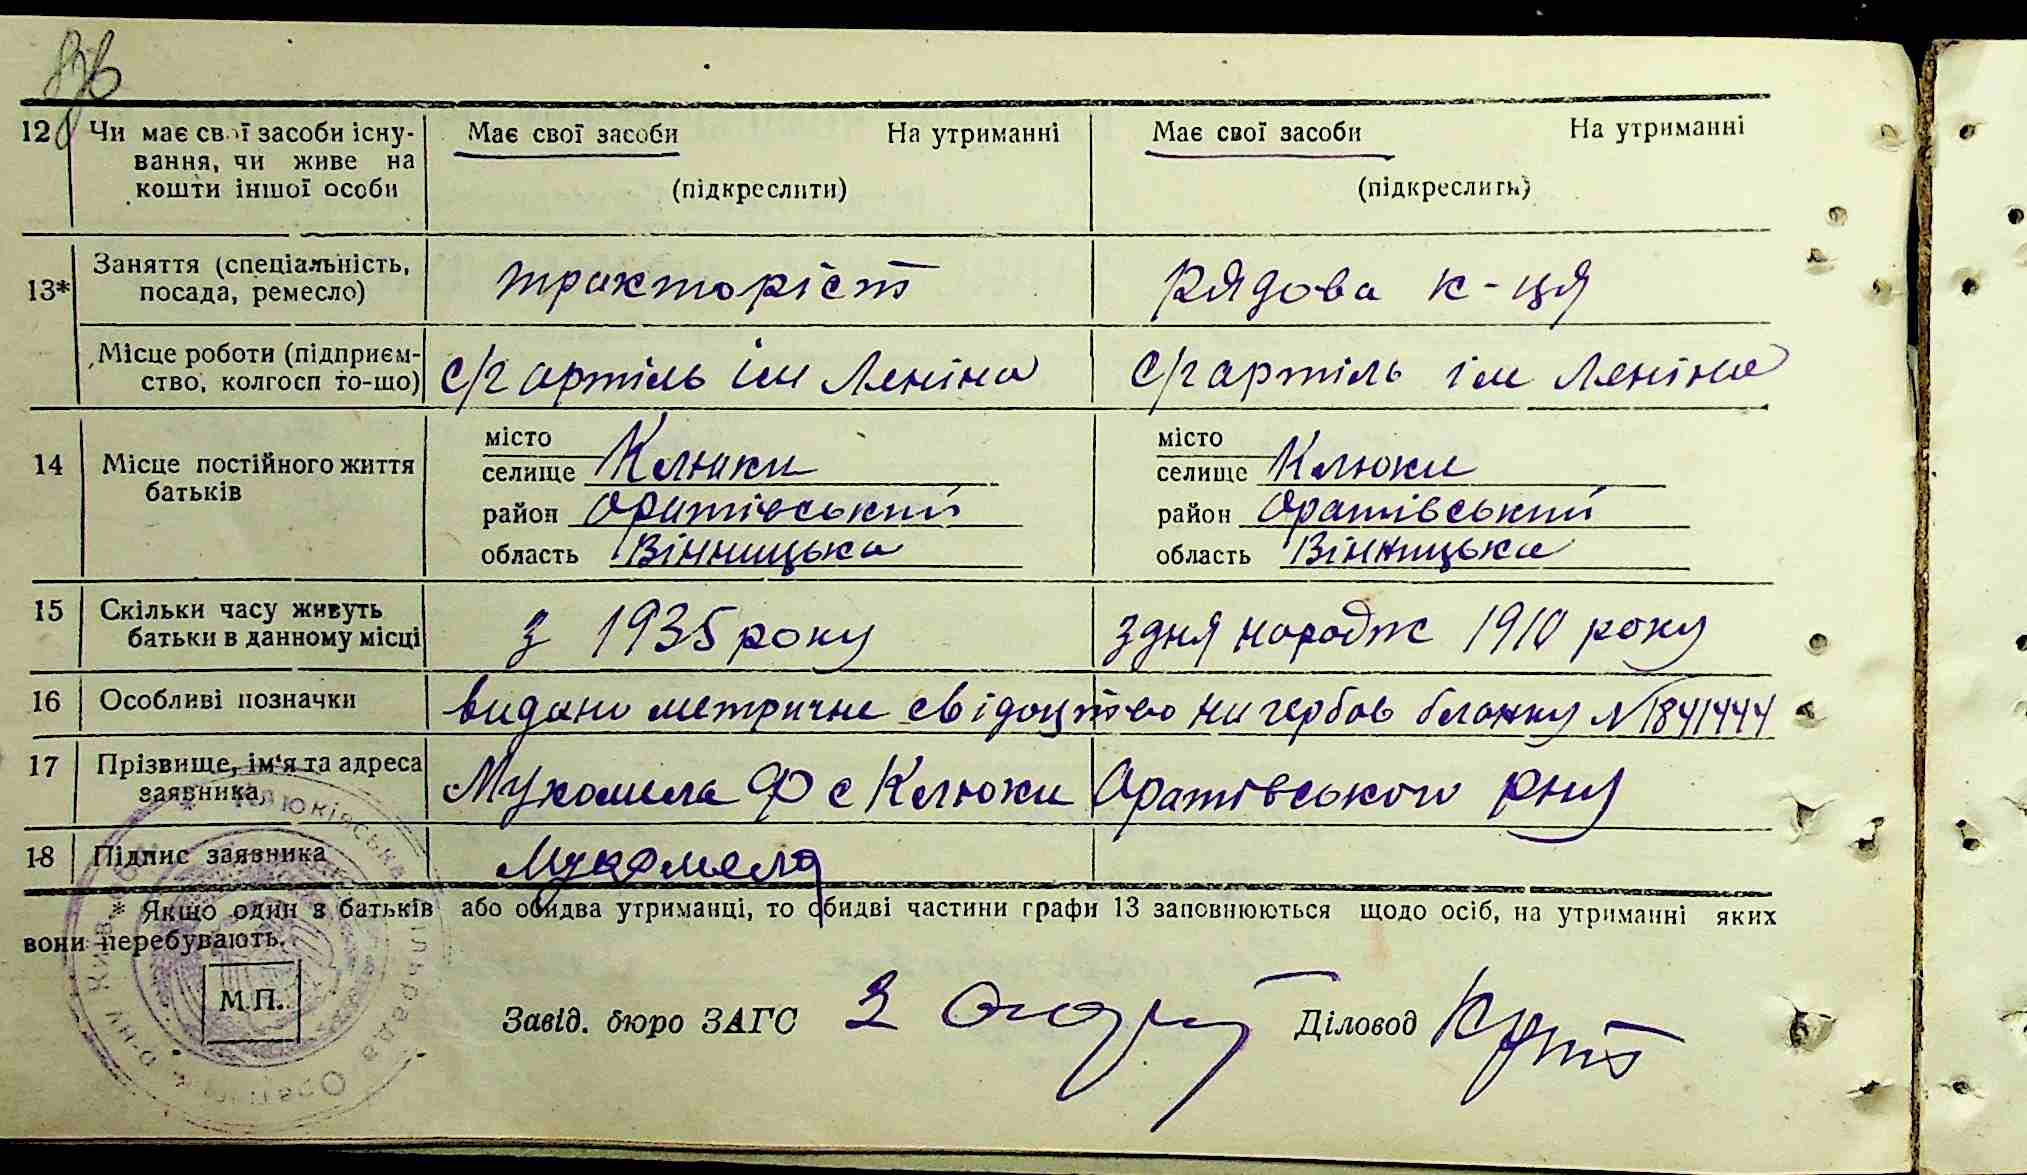 12 Чи має свої засоби існу- Має свої засоби На утриманні Має свої засоби На утриманні
вання, чи живе на
кошти іншої особи (підкреслити) (підкреслить)
13* Заняття (спеціальність, посада, ремесло) тракторіст рядова к-ця
Місце роботи (підприєм-
ство, колгосп то-що) с/г артіль ім Леніна с/г артіль ім Леніна
місто місто
14 Місце постійного життя селище Клюки селище Клюки
батьків район Оратівський район Оратівський
область Вінницька область Вінницька
15 Скільки часу живуть
батьки в данному місці з 1935 року з дня народж 1910 року
16 Особливі позначки видано метричне свідоцтво на гербов бланку № 1841444
17 Прізвище, ім'я та адреса
заявника Мукомела Ф с Клюки Оратівського рну
18 Підпис заявника Мукомела
* Якщо один з батьків або обидва утриманці, то обидві частини графи 13 заповнюються щодо осіб, на утриманні яких
вони перебувають.
М.П.
Завід. бюро ЗАГС Діловод